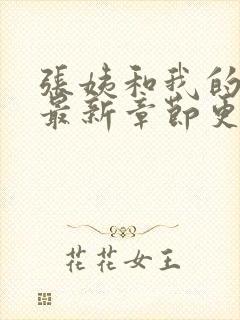 張姨和我的
最新章節更
花花女王